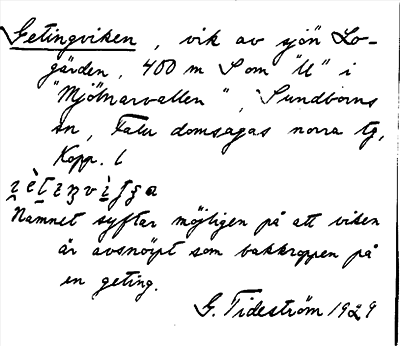 Getingviken, vik av sjön Lo-
gärden, 400 m S om "U" i
"Mjölnarvallen", Sundborns
sn, Falu domsagas norra tg,
Kopp. l
Namnet syftar möjligen på att viken
är avsnörpt som bakkroppen på
en geting.
G. Tideström 1929